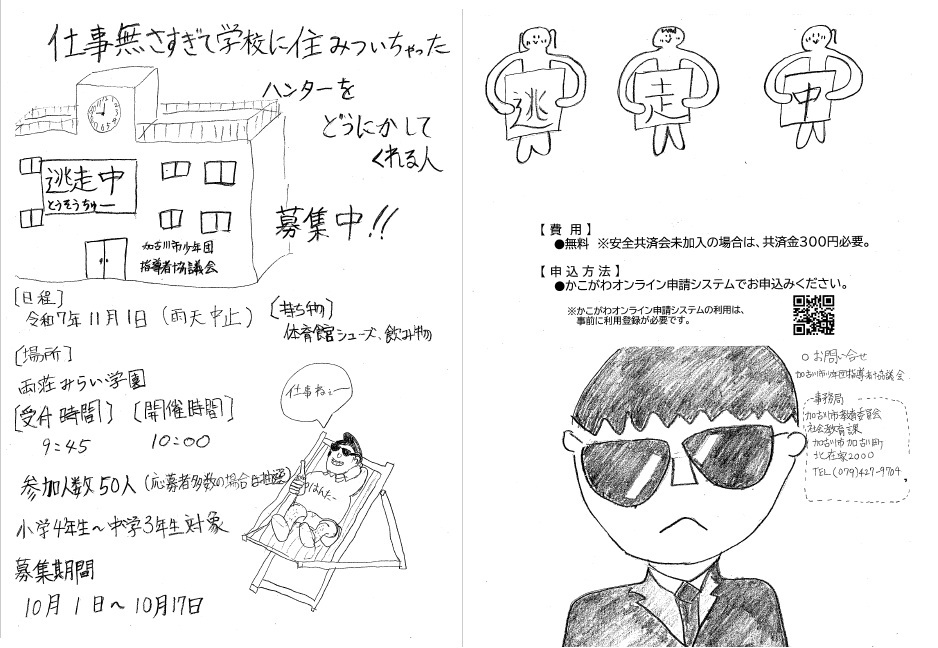 仕事無さすぎて学校に住みついちゃった
ハンターを
どうにかして
くれる人
募集中!!
逃走中
とうそうちゅー
加古川市少年団
指導者協議会
[日程]
令和7年11月1日(雨天中止)
[持ち物]
体育館シューズ、飲み物
[場所]
両荘みらい学園
[受付時間] [開催時間]
9:45 10:00
参加人数50人(応募者多数の場合は抽選)
小学4年生～中学3年生対象
募集期間
10月1日～10月17日
仕事ねぇー
はんたー
逃
走
中
【費用】
●無料 ※安全共済会未加入の場合は、共済金300円必要。
【申込方法】
●かこがわオンライン申請システムでお申込みください。
※かこがわオンライン申請システムの利用は、
事前に利用登録が必要です。
○お問い合せ
加古川市少年団指導者協議会
事務局
加古川市教育委員会
社会教育課
加古川市加古川町
北在家2000
TEL(079)427-9704